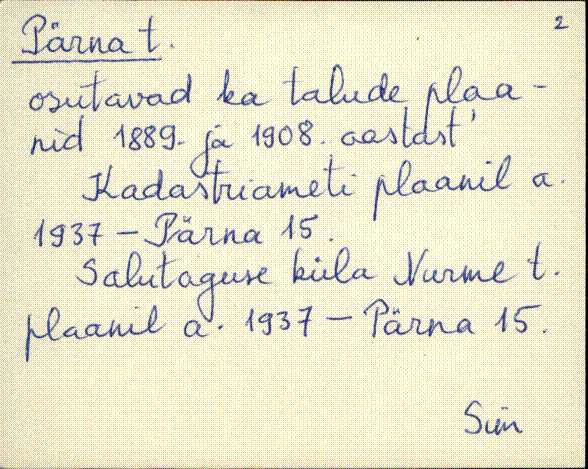 2
Pärna t.
osutavad ka talude plaa-
nid 1889. ja 1908. aastast
Kadastriameti plaanil a.
1937 – Pärna 15.
Salutaguse küla Nurme t.
plaanil a. 1937 – Pärna 15.
Siin